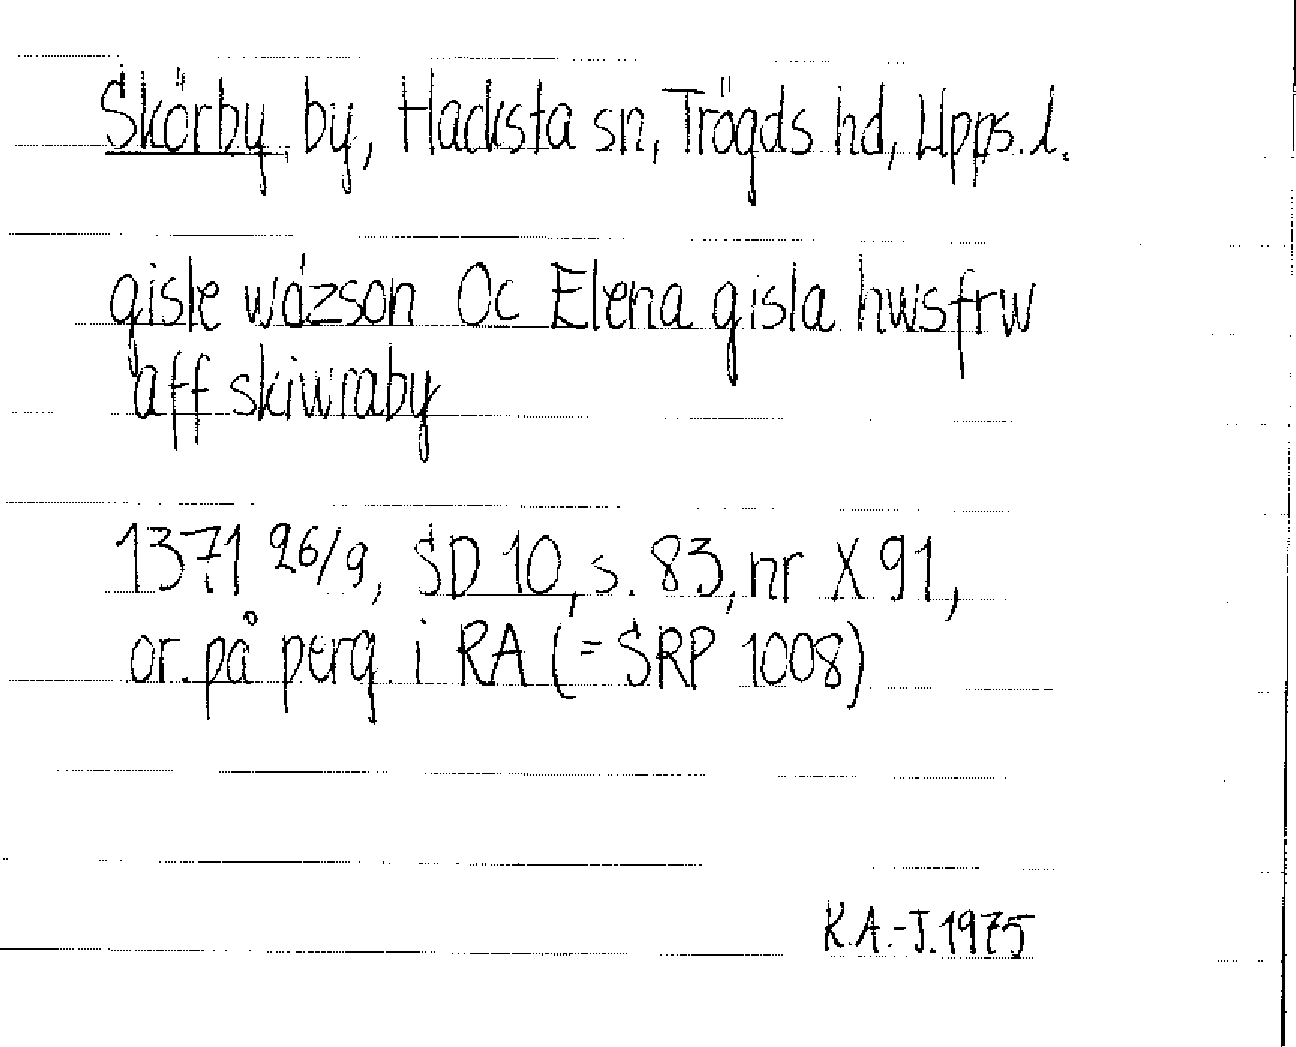 Skörby, by, Hacksta sn, Trögds hd, Upps. l.
gisle wázson Oc Elena gisla hwsfrw
aff skiwraby
1371 26/9, SD 10, s. 83, nr X 91,
or. på perg. i RA (= SRP 1008)
K.A.-J. 1975